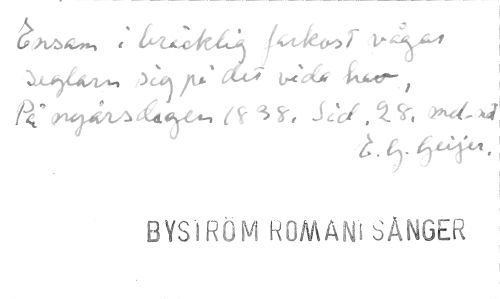 Ensam i bräcklig farkost vågar
seglarn sig på det vida hav,
På nyårsdagen 1838. Sid. 28. mel-not
E. G. Geijer.
BYSTRÖM ROMANI SÅNGER